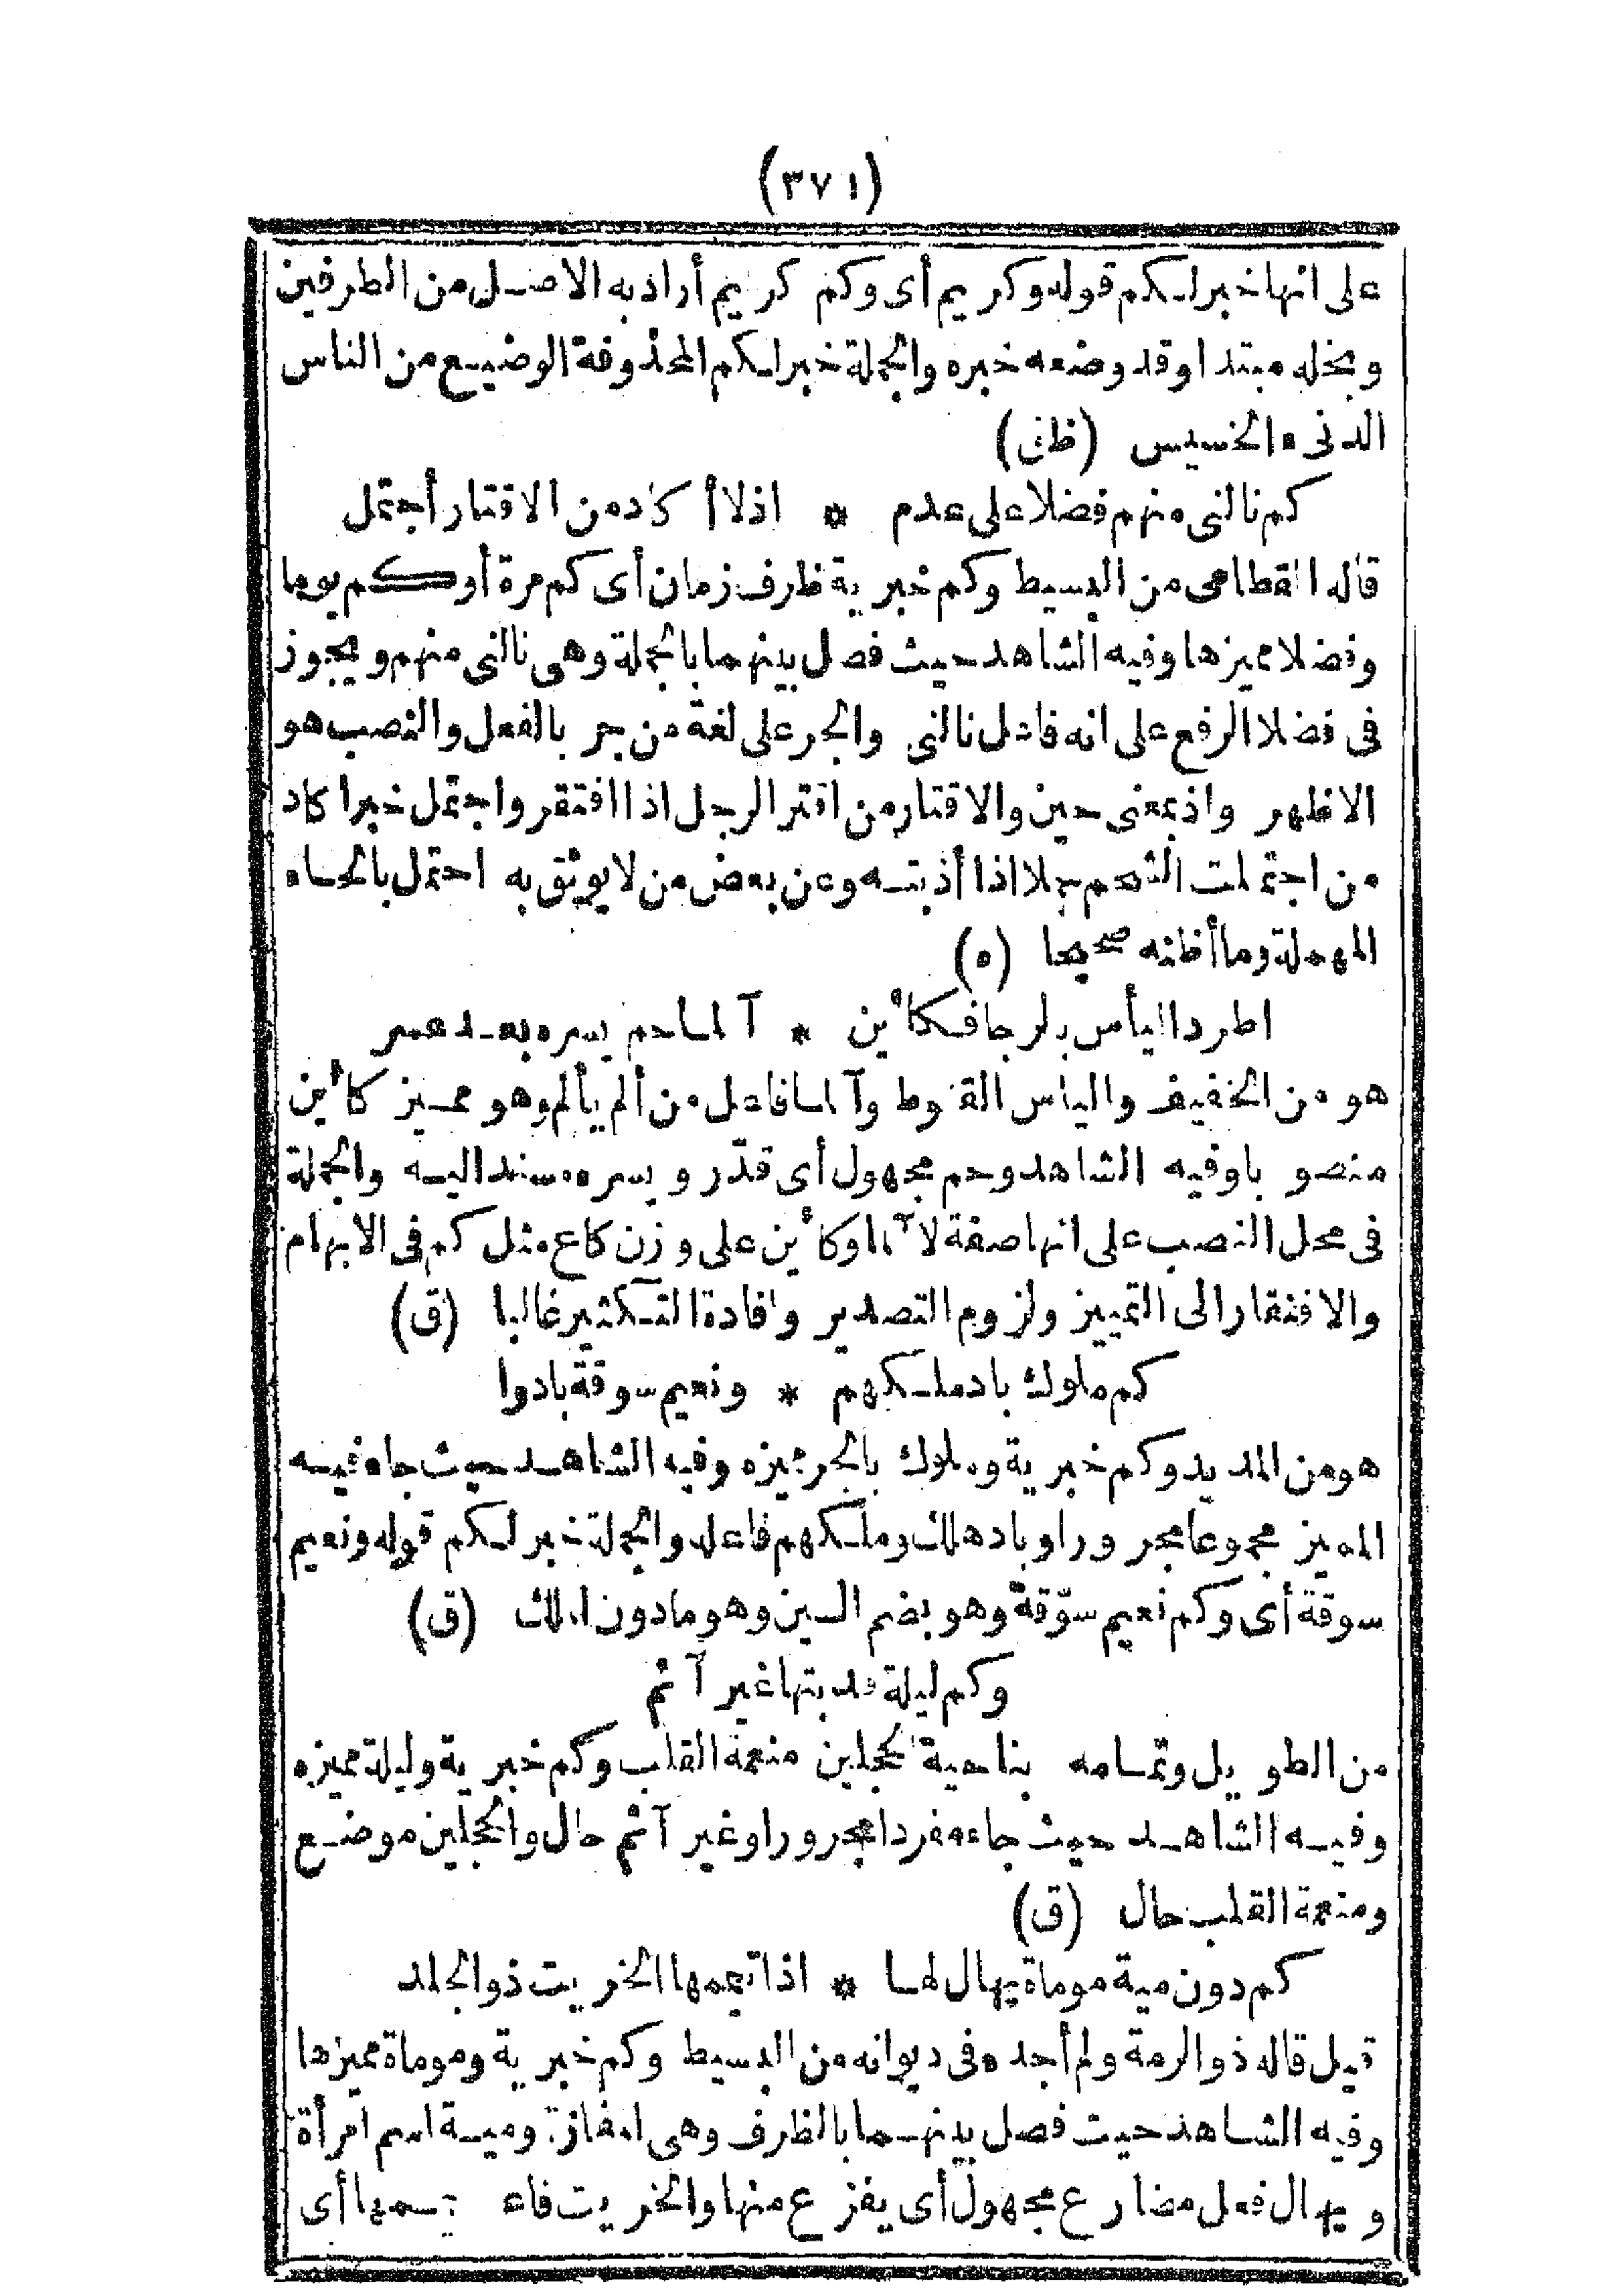 (٣٧١)
على انها خبر لكم قوله وكريم أى وكم كريم أراد به الاصيل من الطرفين
وبخله مبتدا وقد وضعه خبره والجملة خبر لكم المحذوفة الوضيع من الناس
الدنىء الخسيس (ظن)
كم نالنى منهم فضلا على عدم * اذ لا أكاد من الاقتار أجتمل
قاله القطامى من البسيط وكم خبرية ظرف زمان أى كم مرة أو كم يوما
وفضلا مميزها وفيه الشاهد حيث فصل بينهما بالجملة وهى نالنى منهم ويجوز
فى فضلا الرفع على انه فاعل نالنى والجر على لغة من جر بالفعل والنصب هو
الاظهر واذ بمعنى حين والاقتار من اقتر الرجل اذا افتقر واجتمل خبرا كاد
من اجتملت الشحم جملا اذا أذبته وعن بعض من لا يوثق به احتمل بالحاء
المهملة وما أظنه صحيحا (ه)
اطرد اليأس بالرجا فكأين * آلما حم يسره بعد عسر
هو من الخفيف واليأس القنوط وآلما فاعل من ألم يألم وهو مميز كأين
منصوبا وفيه الشاهد وحم مجهول أى قدّر ويسره مسند اليه والجملة
فى محل النصب على انها صفة لآلما وكأين على وزن كاع مثل كم فى الابهام
والافتقار الى التمييز ولزوم التصدير وافادة التكثير غالبا (ق)
كم ملوك باد ملكهم * ونعيم سوقة بادوا
هو من المديد وكم خبرية وملوك بالجر مميزه وفيه الشاهد حيث جاء فيه
المميز مجموعا مجرورا وباد هلك وملكهم فاعله والجملة خبر لكم قوله ونعيم
سوقة أى وكم نعيم سوّقة وهو بضم السين وهو مادون الملك (ق)
وكم ليلة قد بتها غير آثم
من الطويل وتمامه بناحية الحجلين منعمة القلب وكم خبرية وليلة مميزه
وفيه الشاهد حيث جاء مفردا مجرورا وغير آثم حال والحجلين موضع
ومنعمة القلب حال (ق)
كم دون مية موماة يهال لها * اذا تيممها الخريت ذو الجلد
قيل قاله ذو الرمة ولم أجده فى ديوانه من البسيط وكم خبرية وموماة مميزها
وفيه الشاهد حيث فصل بينهما بالظرف وهى المفازة ومية اسم امرأة
ويهال فعل مضارع مجهول أى يفزع منها والخريت فاعل تيممها أى